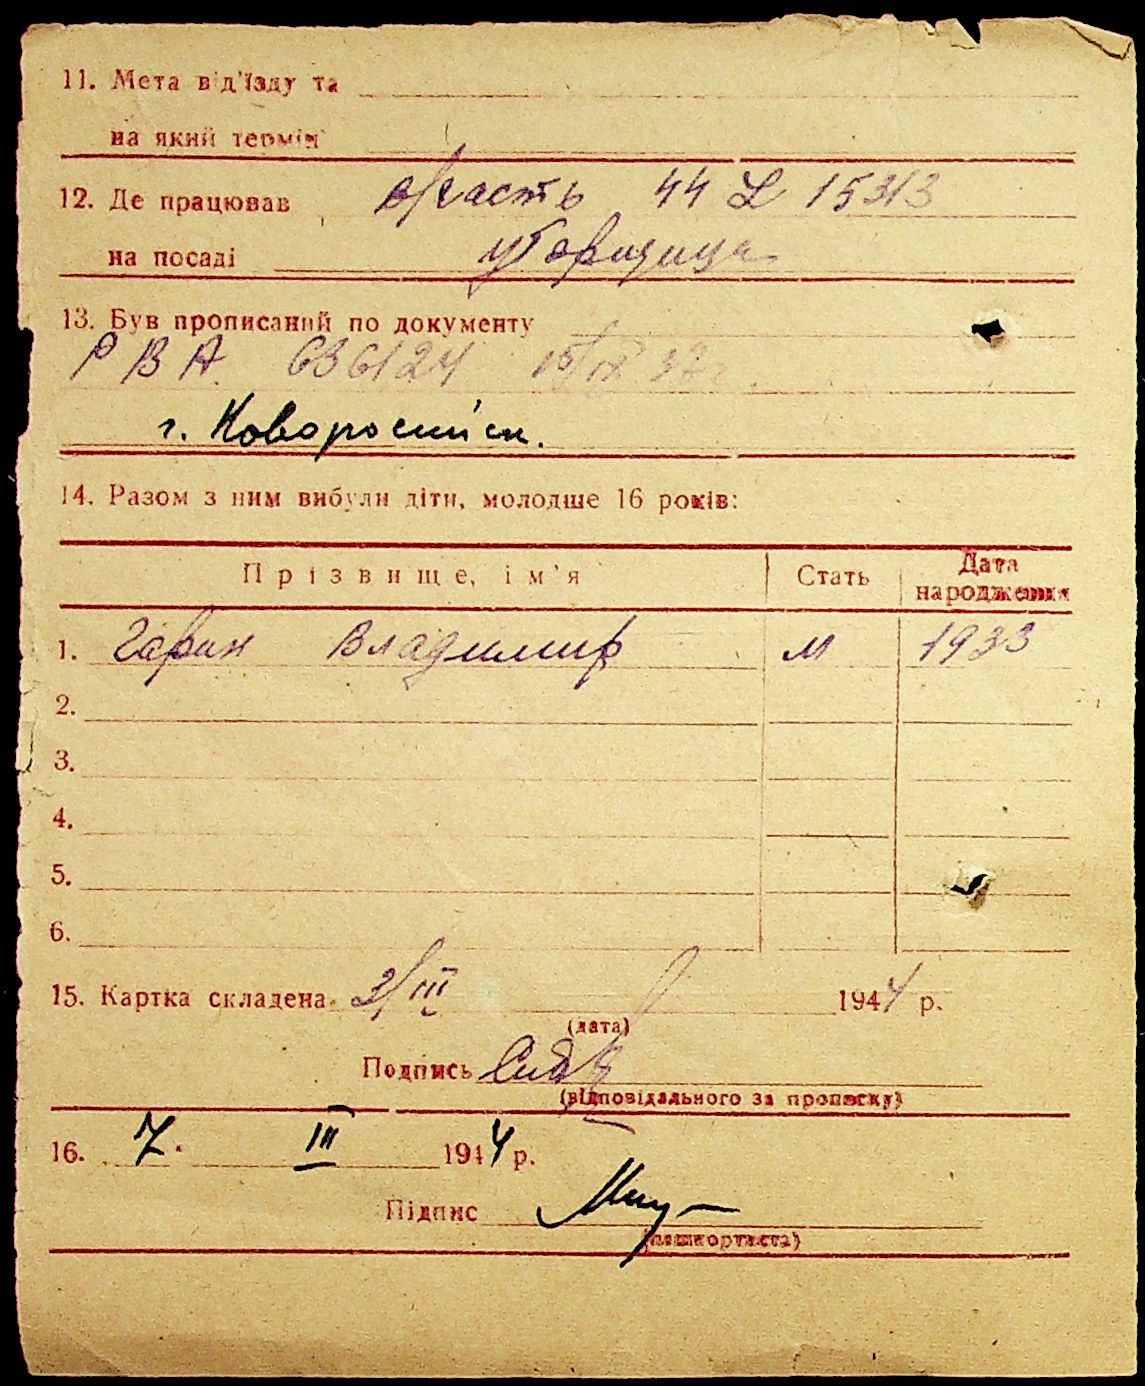 11. Мета від'їзду та
на який термін
12. Де працював 44 L 15313
на посаді уборщица
13. Був прописаний по документу
Р В А 636124 15/IX 37 г.
г. Новороссийск.
14. Разом з ним вибули діти, молодше 16 років:
Прізвище, ім'я Стать Дата народження
1. Гарин Владимир М 1933
2.
3.
4.
5.
6.
15. Картка складена 2/III 1944 р.
(дата)
Подпись
(відповідального за прописку)
16. 7. III 1944 р.
Підпис
(пашпортиста)